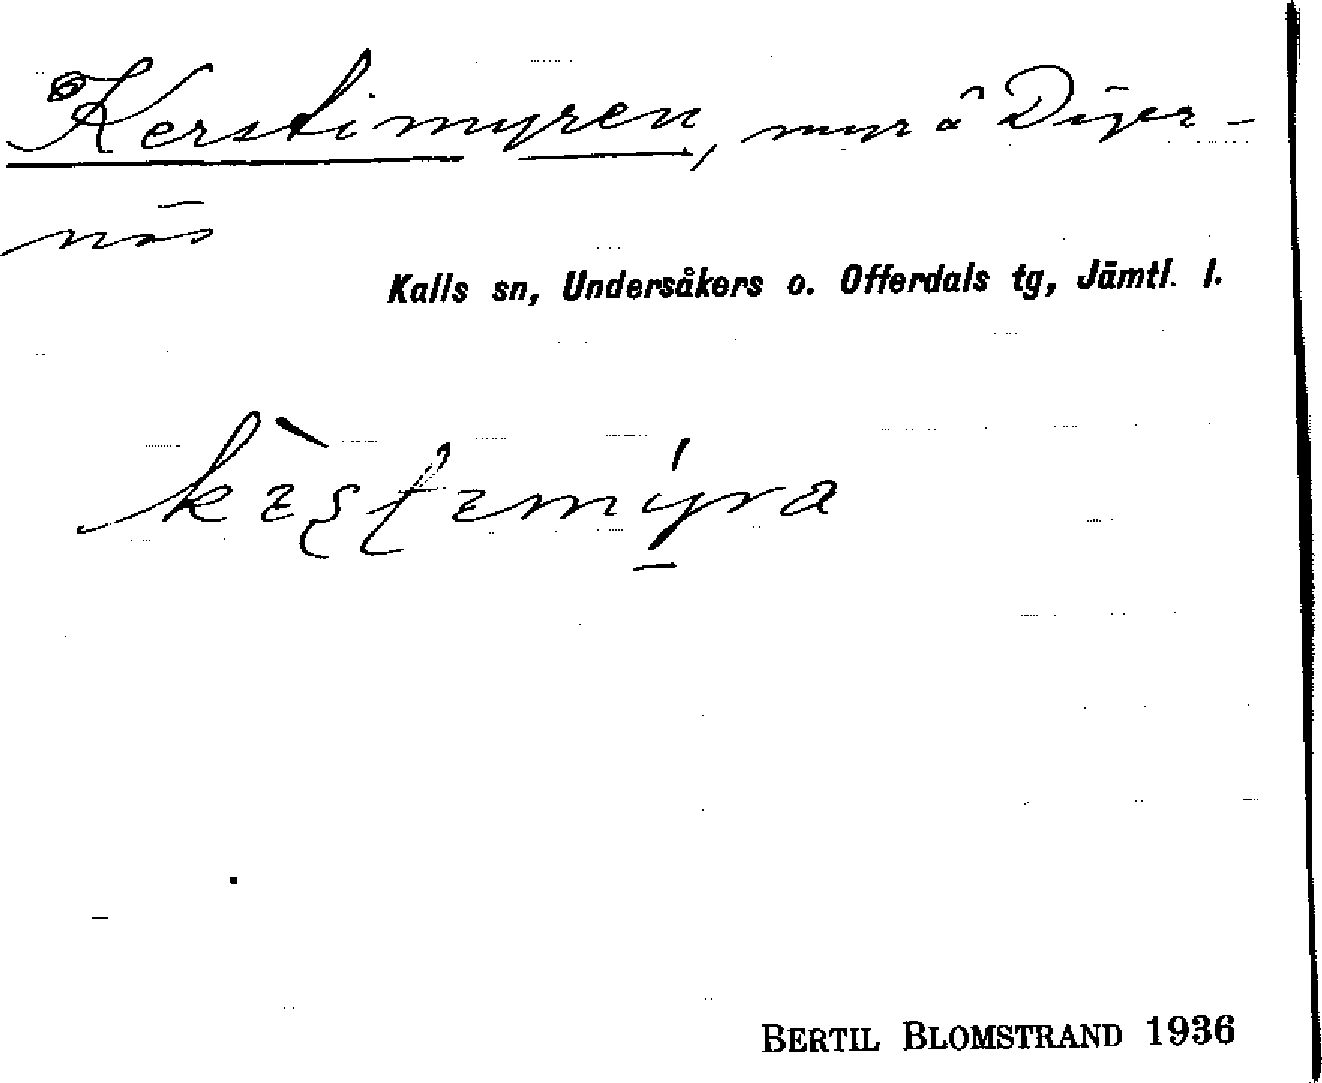 Kerstimyren, myr å Diger-
näs
Kalls sn, Undersåkers o. Offerdals tg, Jämtl. l.
BERTIL BLOMSTRAND 1936